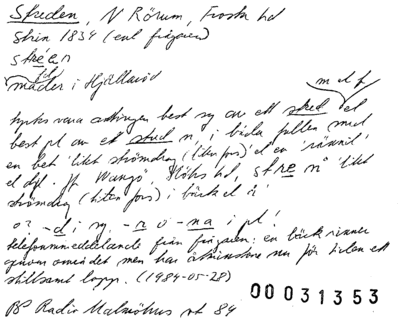 Streden, N Rörum, Frosta hd
Strin 1834 (enl frågaren)
stréen
mader i Hjällaröd
m el f
tycks vara antingen best sg av ett stred el
best pl av ett stred n, i båda fallen med
en bet 'litet strömdrag (liten fors)' el en 'rännil'
el dyl. Jfr Wangö, hd, stre n 'litet
strömdrag (liten fors) i bäck el å'
o? -d i sg. -n o -na i pl!
telefonmeddelande från frågaren: en bäck rinner
genom området men har åtminstone nu för tiden ett
stillsamt lopp. (1984-05-28)
00031353
BP Radio Malmöhus vt 84